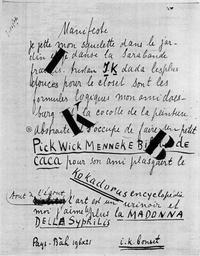 Manifeste
je jette mon squelette dans le jar-
din je danse la sarabande
Tristan IK dada les plus
pour le closet sont les
formules logiques mon ami does-
burg K la cocotte de la peinture
abstraite s'occupe de faire un petit
PICK WICK MENNEKE B K DE
CACA pour son ami plasquert le
Kokadorus encyclopédie
Tout à l'égout l'art est un urinoir et
moi j'aime plus la MADONNA
DELLA SYPHILIS
Pays-Bah
i.k. bonset